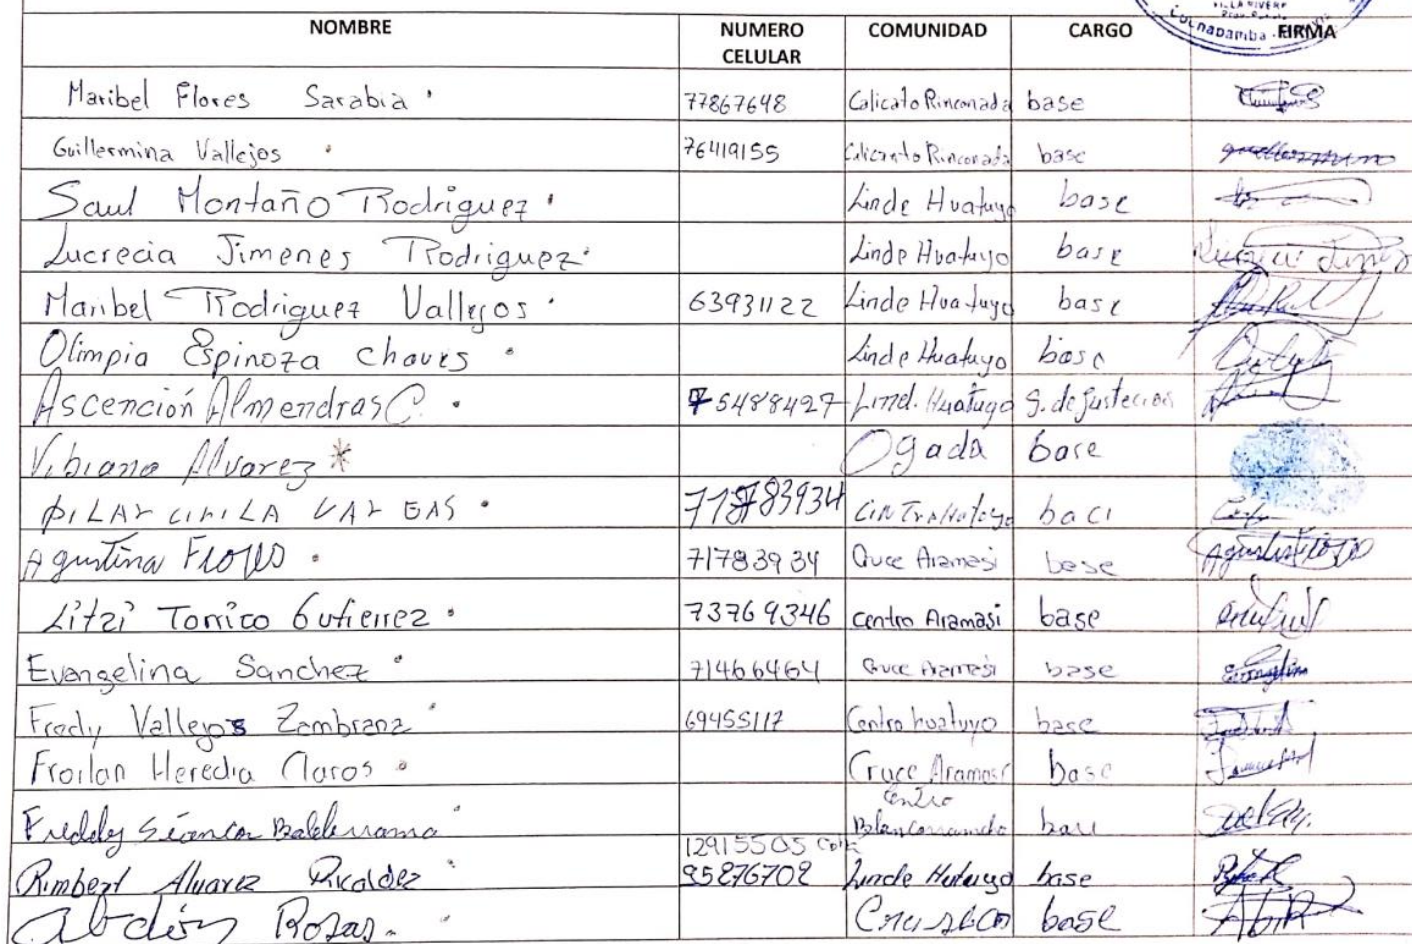 VILLA RIVERO
NOMBRE NUMERO CELULAR COMUNIDAD CARGO FIRMA
Maribel Flores Sarabia 77867648 Calicato Rinconada base
Guillermina Vallejos 76419155 Rinconada base
Saul Montaño Rodriguez Linde Huatuyo base
Lucrecia Jimenes Rodriguez Linde Huatuyo base
Maribel Rodriguez Vallejos 63931122 Linde Huatuyo base
Olimpia Espinoza Chaves Linde Huatuyo base
Ascención Almendras C. 75488427 Lind. Huatuyo S. de Justecias
Vibiano Alvarez * Ogada base
PILAR VARGAS baci
Agustina Flores 71783934 Cruce Aramasi base
Litzi Torrico Gutierrez 73769346 Centro Aramasi base
Evangelina Sanchez 71466464 Cruce Aramasi base
Fredy Vallejos Zambrana 69455117 Centro huatuyo base
Froilan Heredia Claros Cruce Aramasi base
Freddy Balderrama Centro base
Rimbert Alvarez Ricaldez 12915505 Linde Hutuyo base
Abdón Rosas base